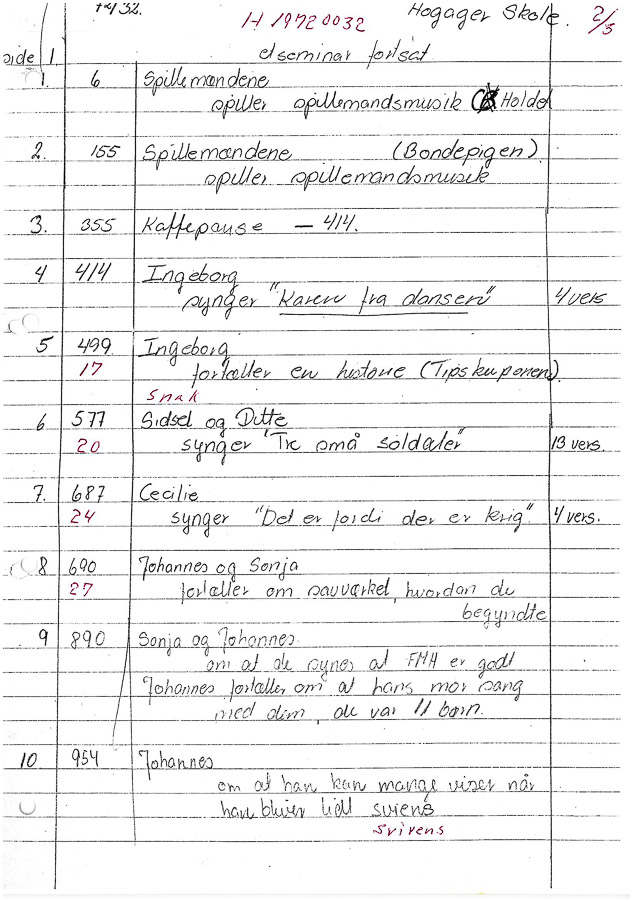 H 19720032 Hogager Skole. 2/5
side 1. elseminar fortsat
1. 6 Spillemændene
spiller spillemandsmusik
2. 155 Spillemændene (Bondepigen)
spiller spillemandsmusik
3. 355 Kaffepause — 414.
4 414 Ingeborg
synger "Karen fra dansen" 4 vers
5 499 Ingeborg
17 fortæller en historie (Tipskuponen)
snak
6 577 Sidsel og Ditte
20 synger "Tre små soldater" 13 vers.
7. 687 Cecilie
24 synger "Det er fordi der er krig" 4 vers.
8 690 Johannes og Sonja
27 fortæller om savværket, hvordan de
begyndte
9 890 Sonja og Johannes
om at de synes at FMH er godt
Johannes fortæller om at hans mor sang
med dem, de var 11 børn.
10 954 Johannes
om at han kan mange viser når
han bliver lidt svirens
svirens